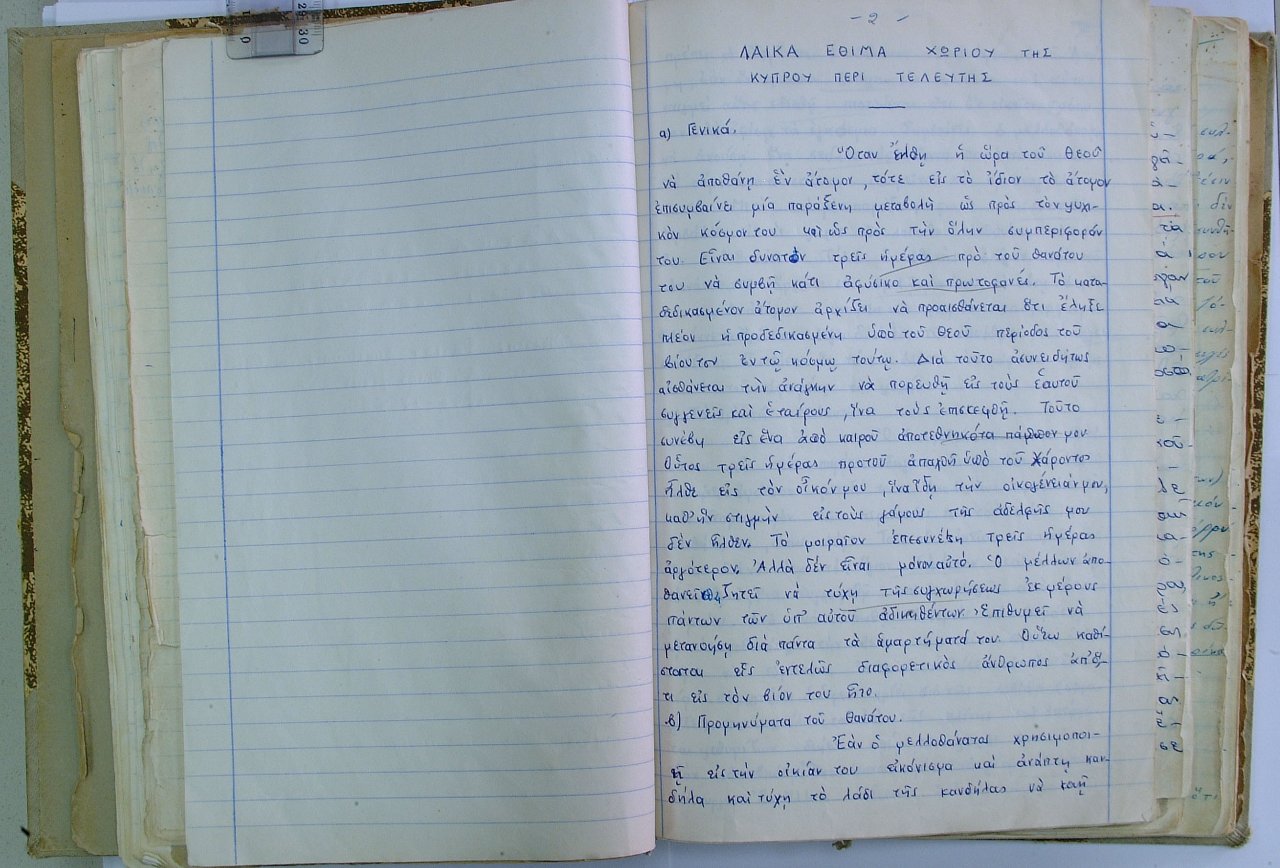 - 2 -
ΛΑΙΚΑ ΕΘΙΜΑ ΧΩΡΙΟΥ ΤΗΣ
ΚΥΠΡΟΥ ΠΕΡΙ ΤΕΛΕΥΤΗΣ
α) Γενικά.
Ὅταν ἔλθῃ ἡ ὥρα τοῦ Θεοῦ
νὰ ἀποθάνῃ ἓν ἄτομον, τότε εἰς τὸ ἴδιον τὸ ἄτομον
ἐπισυμβαίνει μία παράξενη μεταβολὴ ὡς πρὸς τὸν ψυχι-
κὸν κόσμον του καὶ ὡς πρὸς τὴν ὅλην συμπεριφοράν
του. Εἶναι δυνατὸν τρεῖς ἡμέρας πρὸ τοῦ θανάτου
του νὰ συμβῇ κάτι ἀφύσικο καὶ πρωτοφανές. Τὸ κατα-
δεδικασμένον ἄτομον ἀρχίζει νὰ προαισθάνεται ὅτι ἔληξε
πλέον ἡ προδεδικασμένη ὑπὸ τοῦ Θεοῦ περίοδος τοῦ
βίου του ἐν τῷ κόσμῳ τούτῳ. Διὰ τοῦτο ἀσυνειδήτως
αἰσθάνεται τὴν ἀνάγκην νὰ πορευθῇ εἰς τοὺς ἑαυτοῦ
συγγενεῖς καὶ ἑταίρους, ἵνα τοὺς ἐπισκεφθῇ. Τοῦτο
συνέβη εἰς ἕνα ἀπὸ καιροῦ ἀποτεθνηκότα πάππον μου
Οὗτος τρεῖς ἡμέρας προτοῦ ἀπαχθῇ ὑπὸ τοῦ Χάροντος
ἦλθε εἰς τὸν οἶκόν μου, ἵνα ἴδῃ τὴν οἰκογένειάν μου,
καθ' ἣν στιγμὴν εἰς τοὺς γάμους τῆς ἀδελφῆς μου
δὲν ἦλθεν. Τὸ μοιραῖον ἐπεσυνέβη τρεῖς ἡμέρας
ἀργότερον. Ἀλλὰ δὲν εἶναι μόνον αὐτό. Ὁ μέλλων ἀπο-
θανεῖν ζητεῖ νὰ τύχῃ τῆς συγχωρήσεως ἐκ μέρους
πάντων τῶν ὑπ' αὐτοῦ ἀδικηθέντων. Ἐπιθυμεῖ νὰ
μετανοήσῃ διὰ πάντα τὰ ἁμαρτήματά του. Οὕτω καθί-
σταται εἷς ἐντελῶς διαφορετικὸς ἄνθρωπος ἀπ' ὅ,-
τι εἰς τὸν βίον του ἦτο.
β) Προμηνύματα τοῦ θανάτου.
Ἐὰν ὁ μελλοθάνατος χρησιμοποι-
ῇ εἰς τὴν οἰκίαν του εἰκόνισμα καὶ ἀνάπτῃ καν-
δήλα καὶ τύχῃ τὸ λάδι τῆς κανδήλας νὰ καῇ